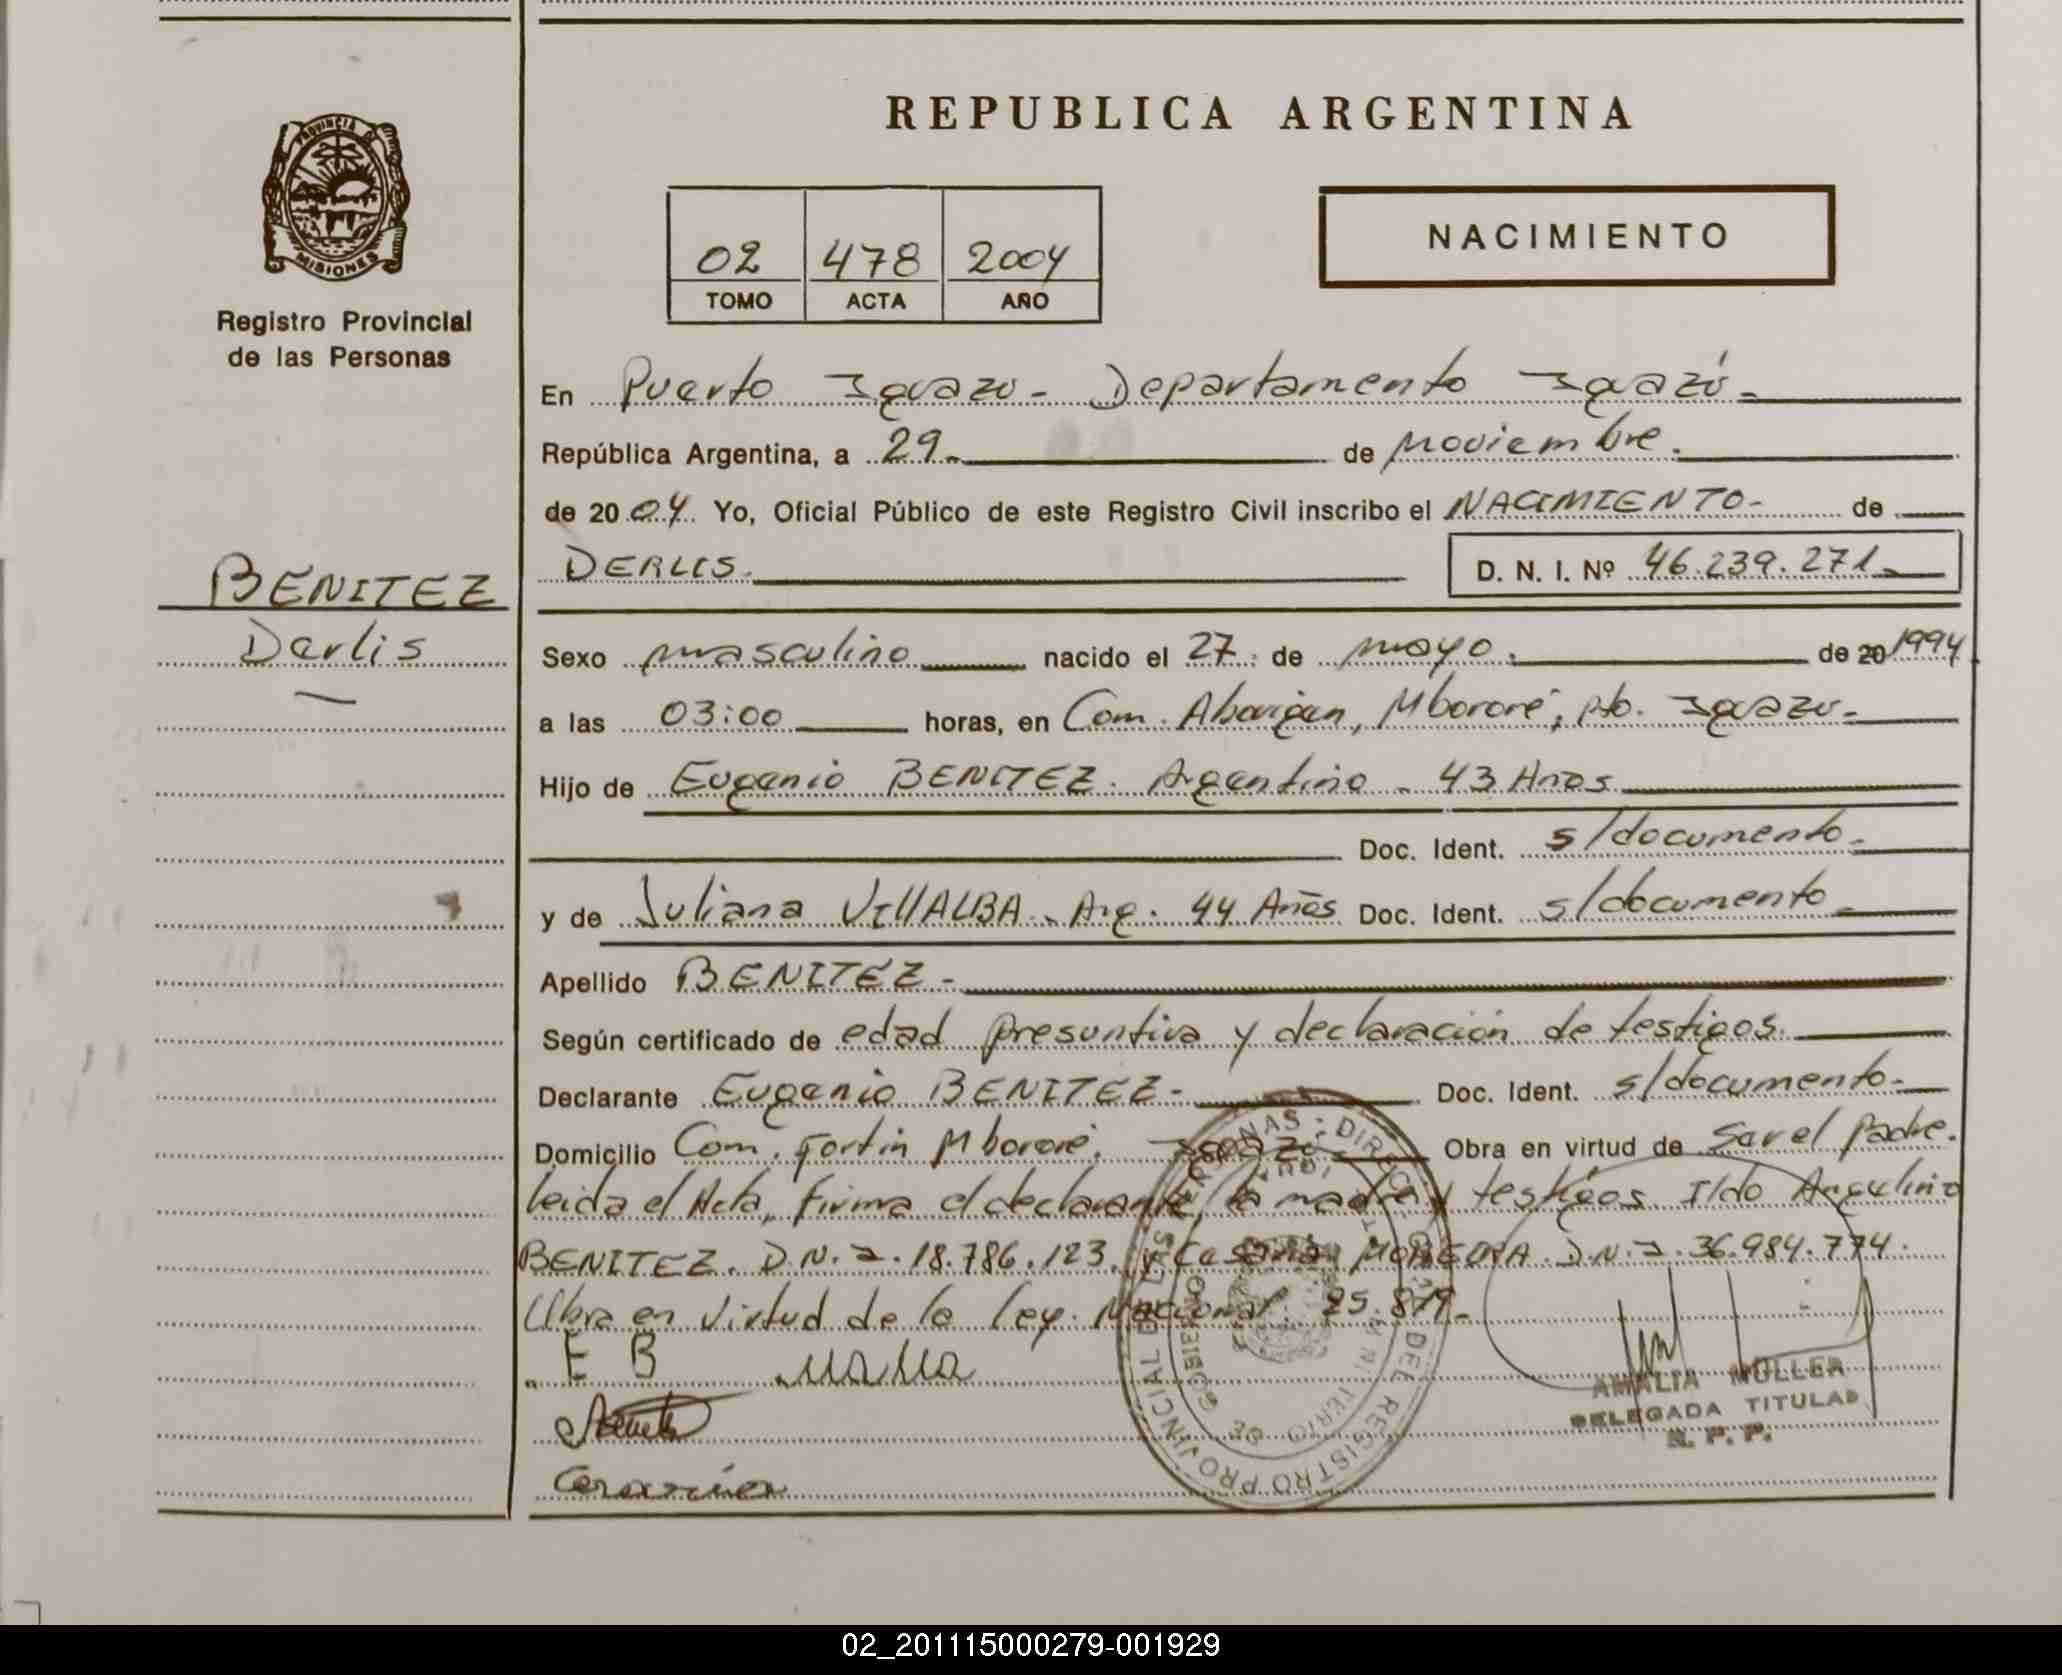 REPUBLICA ARGENTINA
PROVINCIA DE MISIONES
Registro Provincial
de las Personas
02 478 2004
TOMO ACTA AÑO
NACIMIENTO
En Puerto Iguazu - Departamento Iguazú -
República Argentina, a 29 - de Noviembre.
de 20 04 Yo, Oficial Público de este Registro Civil inscribo el NACIMIENTO - de
DERLIS. D. N. I. Nº 46.239.271 -
BENITEZ
Derlis
Sexo masculino nacido el 27 de mayo. de 20 1994
a las 03:00 horas, en Com. Aborigen, Mbororé, Pto. Iguazu -
Hijo de Eugenio BENITEZ. Argentino - 43 Años
Doc. Ident. s/documento -
y de Juliana VIllALBA - Arg. 44 Años Doc. Ident. s/documento -
Apellido BENITEZ -
Según certificado de edad presuntiva y declaración de testigos.
Declarante Eugenio BENITEZ - Doc. Ident. s/documento -
Domicilio Com. Fortin Mbororé. Iguazu Obra en virtud de Ser el Padre.
leida el Acta, firma el declarante, la madre y testigos Ildo Angelino
BENITEZ. D.N.I. 18.786.123. y MOREIRA D.N.I. 36.984.774.
Obra en virtud de la ley Nacional 25.819 -
E B
AMALIA MULLER
DELEGADA TITULAR
R. P. P.
REGISTRO PROVINCIAL DE LAS PERSONAS
02_201115000279-001929